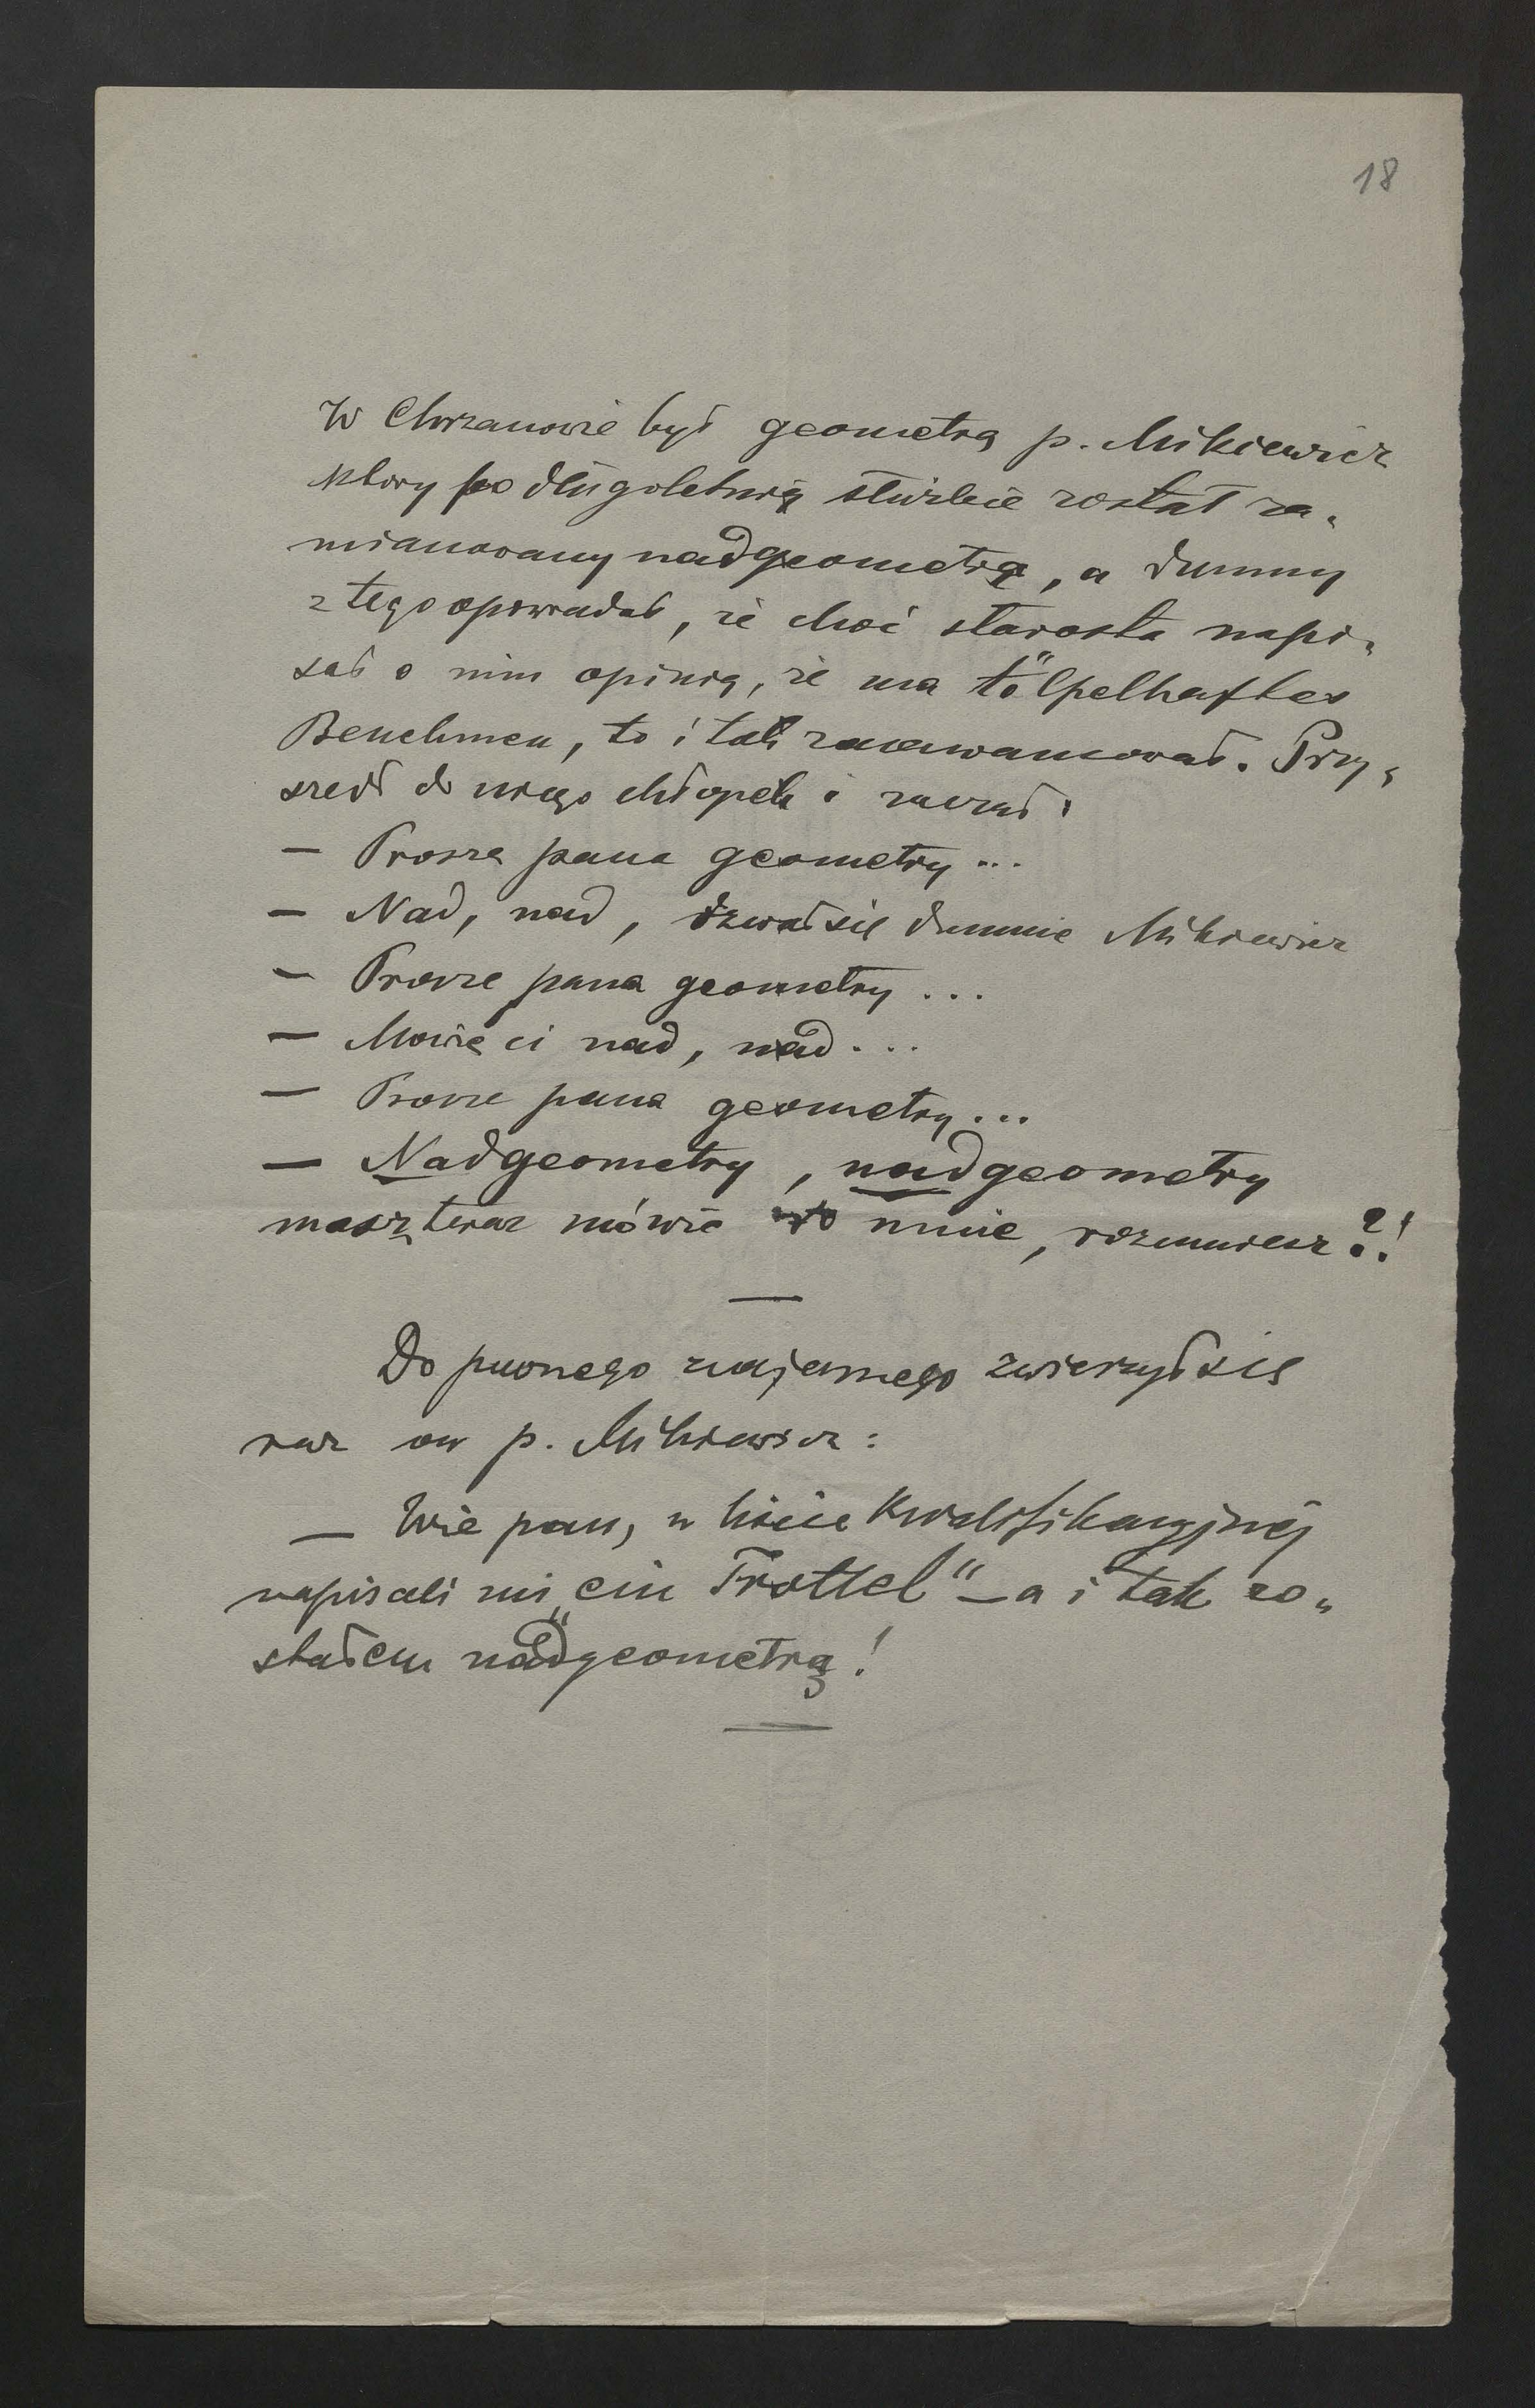 18
W Chrzanowie był geometrą p. Mikiewicz
który po długoletniej służbie został za-
mianowany nadgeometrą, a dumny
z tego opowiadał, że choć starosta napi-
sał o nim opinię, że ma tölpelhaftes
Benehmen, to i tak zaawansował. Przy-
szedł do niego chłopek i zaczął:
— Proszę pana geometry...
— Nad, nad, ozwał się dumnie Mikiewicz
— Proszę pana geometry...
— Mówię ci nad, nad...
— Proszę pana geometry...
— Nadgeometry, nadgeometry
masz teraz mówić do mnie, rozumiesz?!
—
Do pewnego znajomego zwierzył się
raz ów p. Mikiewicz:
— Wie pan, w liście kwalifikacyjnej
napisali mi „ein Trottel" — a i tak zo-
stałem nadgeometrą!